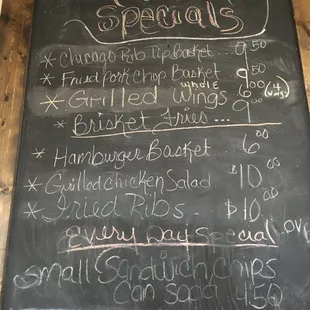 Specials
* Chicago Rib Tip Basket... 9.50
* Fried pork chop Basket 9.50
* Grilled whole Wings 6.00 (4 wings)
* Brisket Fries... 9.00
* Hamburger Basket... 6.00
* Grilled chicken Salad... $10.00
* Fried Ribs... $10.00
Every Day Special
Love
small Sandwich, chips
Can soda 4.50